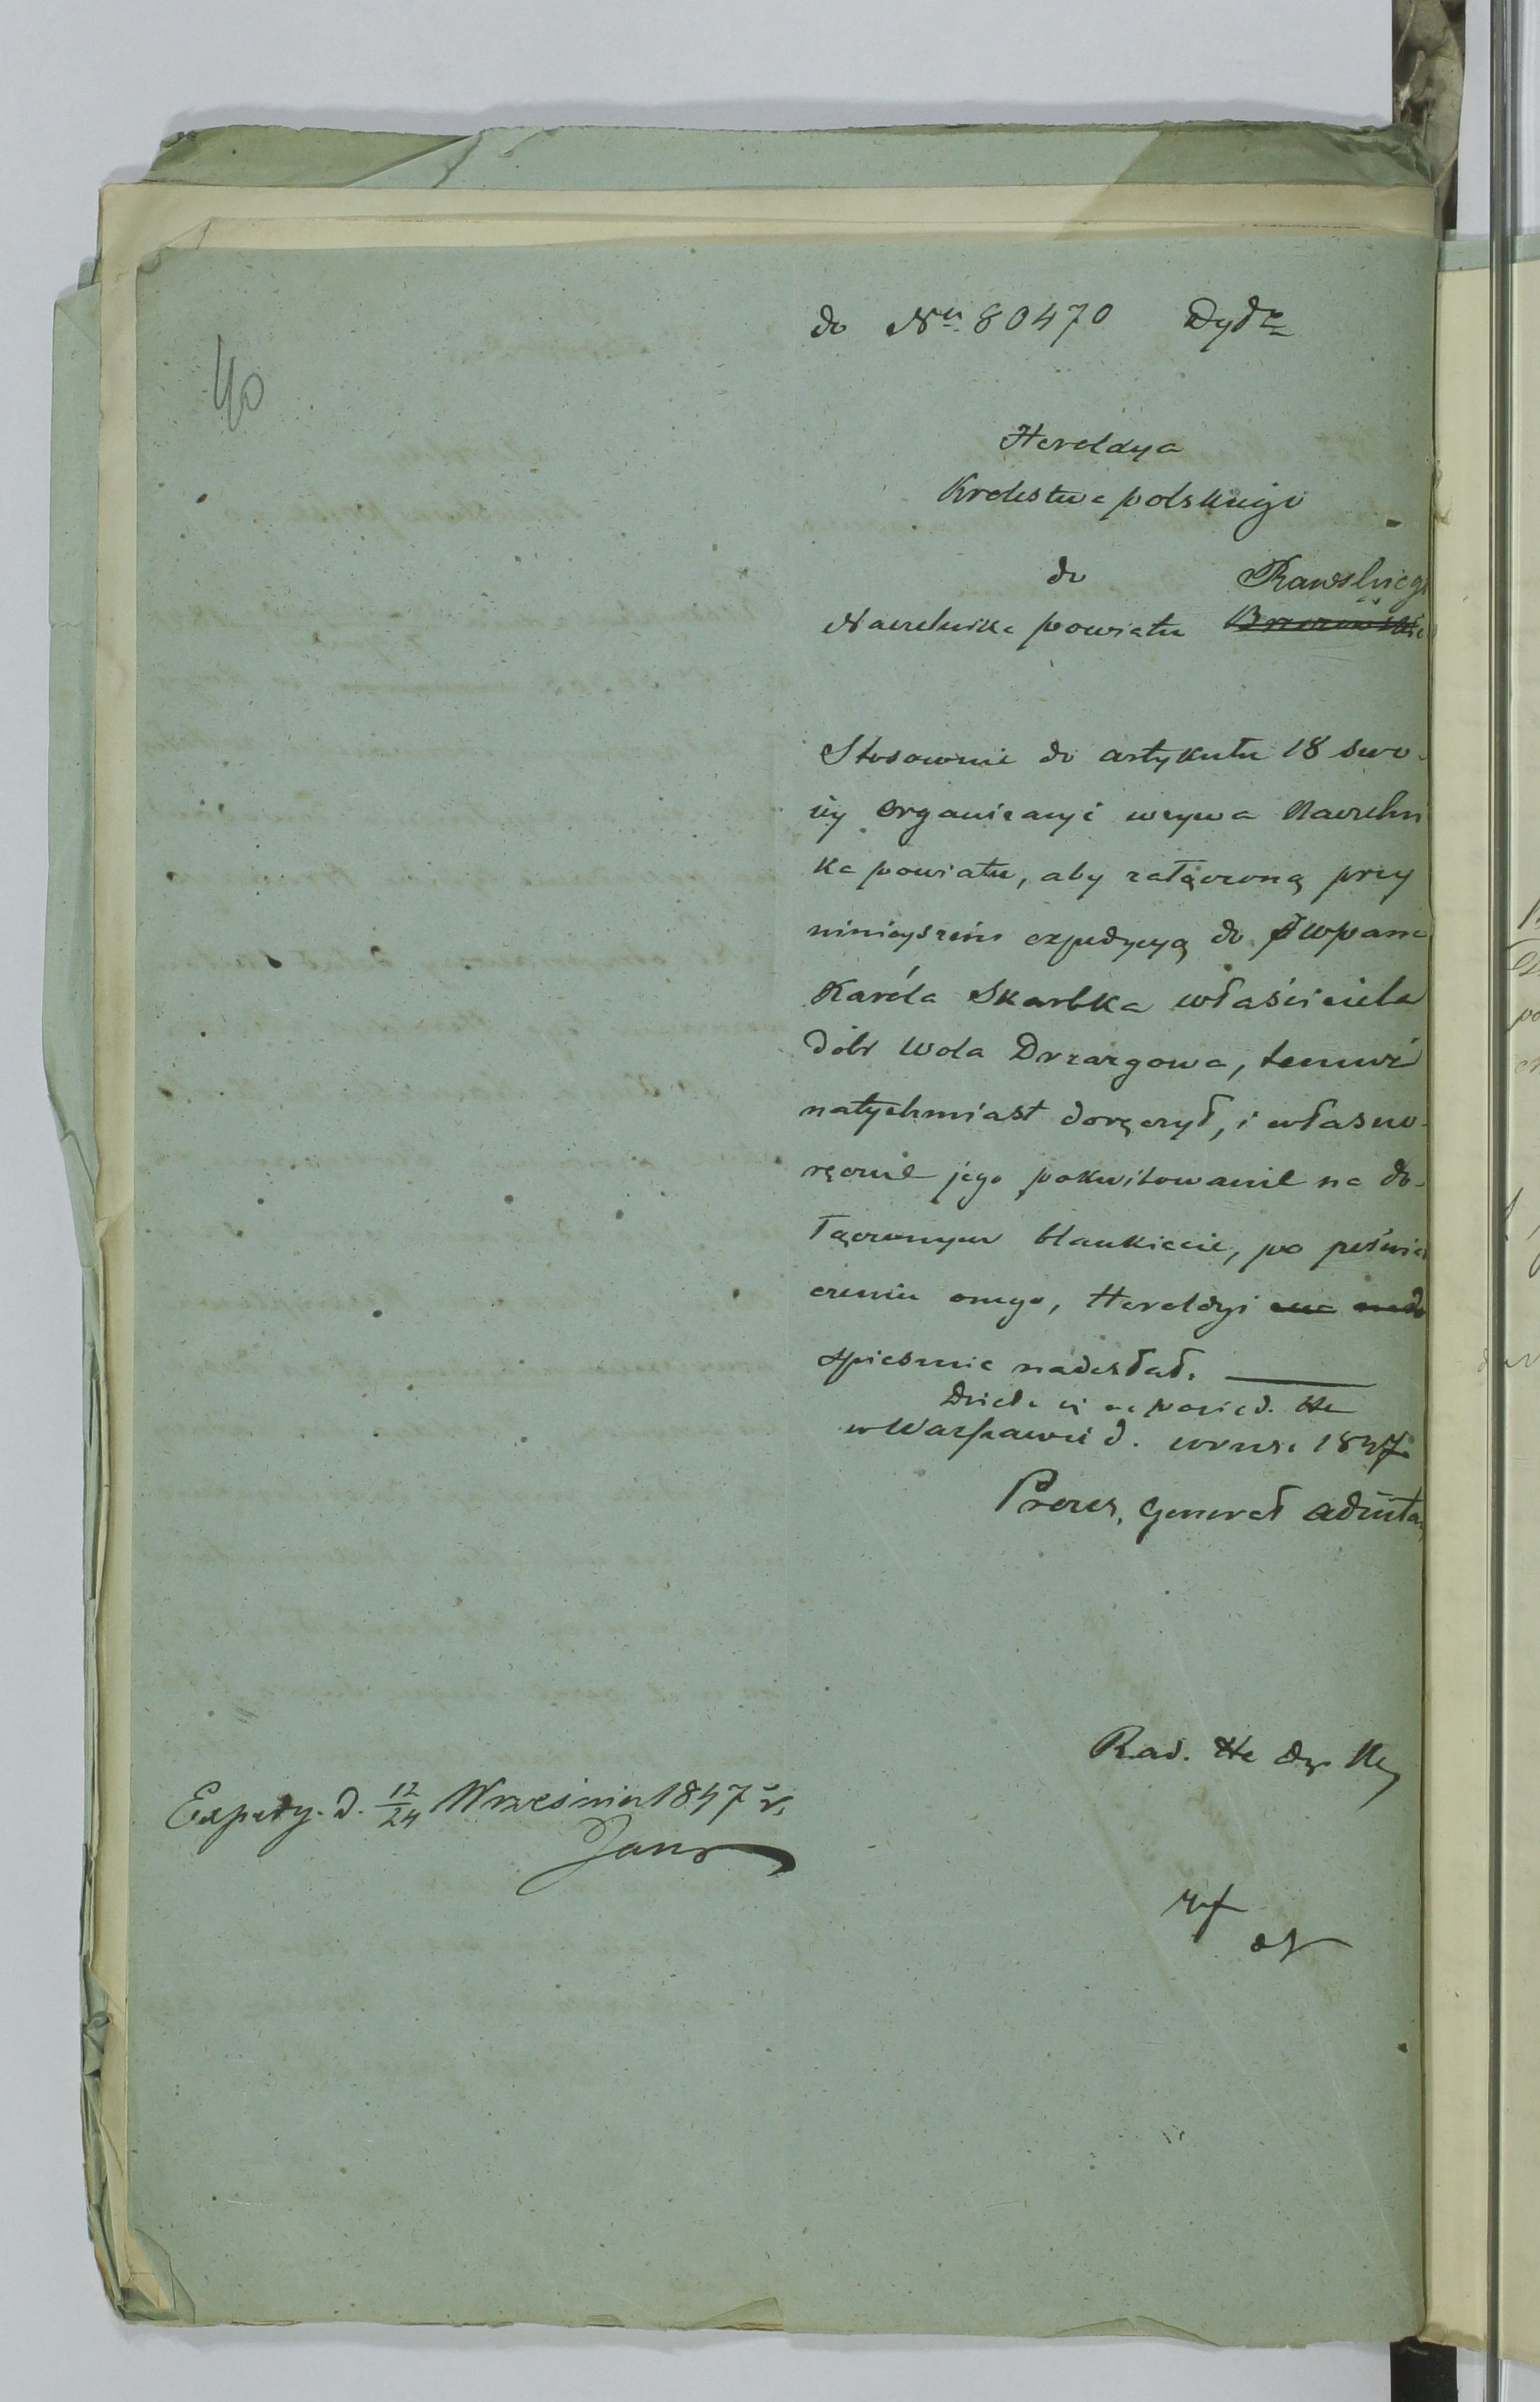 40
do Nu 80470 Dydr
Heroldya
Krolestwa polskiego
do Rawskiego
Naczelnika powiatu
Stosownie do artykułu 18 swo-
iey organizacyi wzywa Naczelni
ka powiatu, aby załączoną przy
ninieyszem expedycyą do JWpana
Karóla Skarbka właściciela
dóbr Wola Drzazgowa, temuż
natychmiast doręczył, i własno-
ręczne jego pokwitowanie na do-
łączonym blankiecie, po poświad
czeniu onego, Heroldyi
spiesznie nadesłał.
Działo się na posied. He
w Warszawie d. wrześ. 1847
Prezes, Generał adiuta
Rad. He
Expedy. d. 12/24 Września 1847 r.